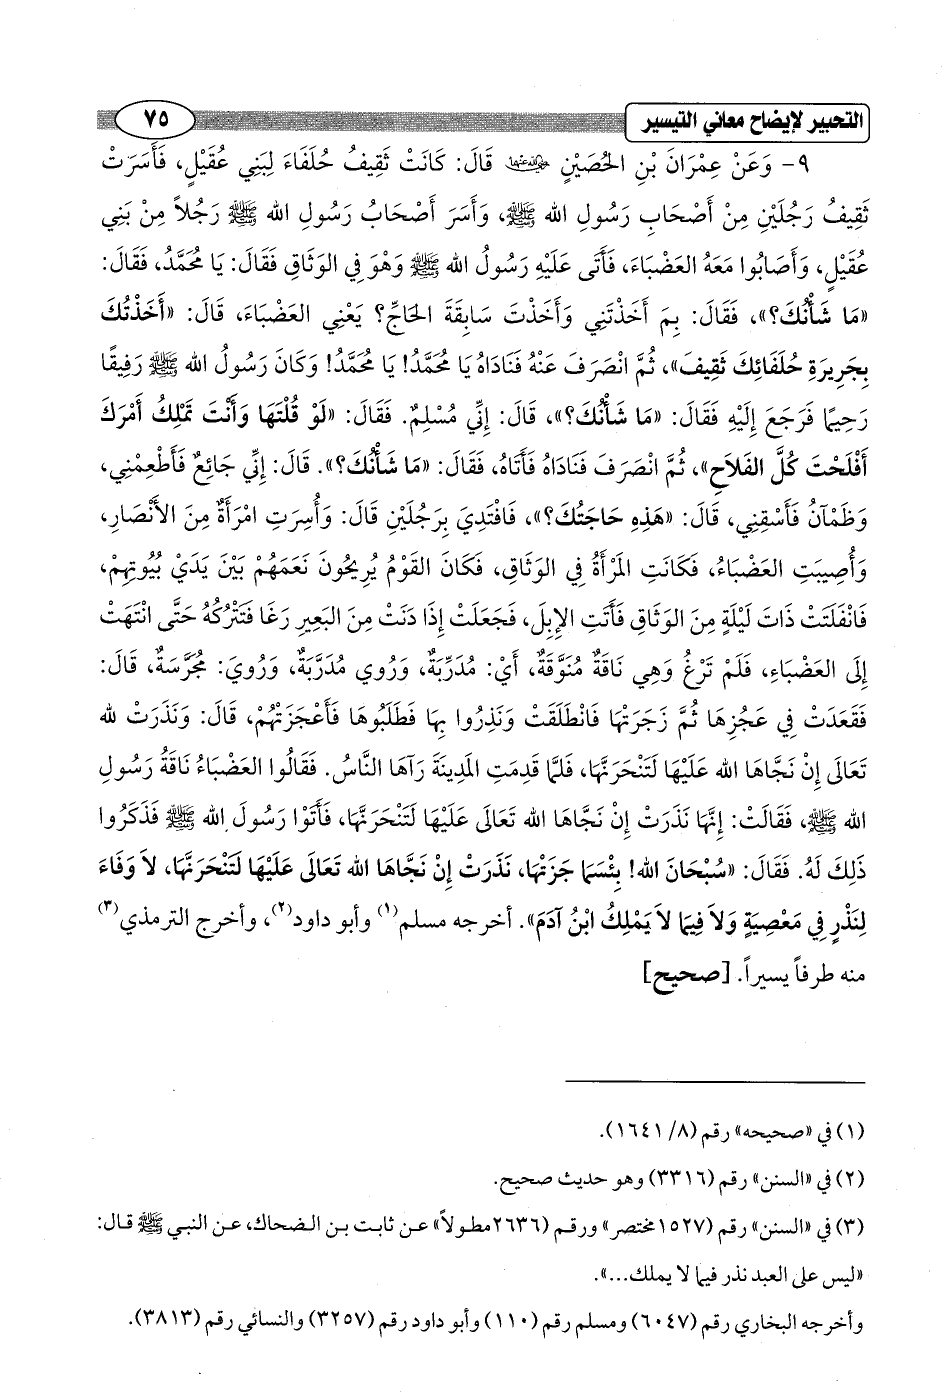 التحبير لإيضاح معاني التيسير
٧٥
٩- وَعَنْ عِمْرَانَ بْنِ الحُصَيْنِ رضي الله عنهما قَالَ: كَانَتْ ثَقِيفُ حُلَفَاءَ لِبَنِي عُقَيْلٍ، فَأَسَرَتْ
ثَقِيفُ رَجُلَيْنِ مِنْ أَصْحَابِ رَسُولِ الله ﷺ، وَأَسَرَ أَصْحَابُ رَسُولِ الله ﷺ رَجُلاً مِنْ بَنِي
عُقَيْلٍ، وَأَصَابُوا مَعَهُ العَضْبَاءَ، فَأَتَى عَلَيْهِ رَسُولُ الله ﷺ وَهْوَ فِي الوَثَاقِ فَقَالَ: يَا مُحَمَّدُ، فَقَالَ:
«مَا شَأْنُكَ؟»، فَقَالَ: بِمَ أَخَذْتَنِي وَأَخَذْتَ سَابِقَةَ الحَاجِّ؟ يَعْنِي العَضْبَاءَ، قَالَ: «أَخَذْتُكَ
بِجَرِيرَةِ حُلَفَائِكَ ثَقِيفَ»، ثُمَّ انْصَرَفَ عَنْهُ فَنَادَاهُ يَا مُحَمَّدُ! يَا مُحَمَّدُ! وَكَانَ رَسُولُ الله ﷺ رَفِيقًا
رَحِيمًا فَرَجَعَ إِلَيْهِ فَقَالَ: «مَا شَأْنُكَ؟»، قَالَ: إِنِّي مُسْلِمٌ. فَقَالَ: «لَوْ قُلْتَهَا وَأَنْتَ تَمْلِكُ أَمْرَكَ
أَفْلَحْتَ كُلَّ الفَلاَحِ»، ثُمَّ انْصَرَفَ فَنَادَاهُ فَأَتَاهُ، فَقَالَ: «مَا شَأْنُكَ؟». قَالَ: إِنِّي جَائِعٌ فَأَطْعِمْنِي،
وَظَمْآنُ فَأَسْقِنِي، قَالَ: «هَذِهِ حَاجَتُكَ؟»، فَافْتَدِيَ بِرَجُلَيْنِ قَالَ: وَأُسِرَتِ امْرَأَةٌ مِنَ الأَنْصَارِ،
وَأُصِيبَتِ العَضْبَاءُ، فَكَانَتِ المَرْأَةُ فِي الوَثَاقِ، فَكَانَ القَوْمُ يُرِيحُونَ نَعَمَهُمْ بَيْنَ يَدَيْ بُيُوتِهِمْ،
فَانْفَلَتَتْ ذَاتَ لَيْلَةٍ مِنَ الوَثَاقِ فَأَتَتِ الإِبِلَ، فَجَعَلَتْ إِذَا دَنَتْ مِنَ البَعِيرِ رَغَا فَتَتْرُكُهُ حَتَّى انْتَهَتْ
إِلَى العَضْبَاءِ، فَلَمْ تَرْغُ وَهِي نَاقَةٌ مُنَوَّقَةٌ، أَيْ: مُدَرَّبَةٌ، وَرُوي مُدَرَّبَةٌ، وَرُويَ: مُجَرَّسَةٌ، قَالَ:
فَقَعَدَتْ فِي عَجُزِهَا ثُمَّ زَجَرَتْهَا فَانْطَلَقَتْ وَنَذِرُوا بِهَا فَطَلَبُوهَا فَأَعْجَزَتْهُمْ، قَالَ: وَنَذَرَتْ لله
تَعَالَى إِنْ نَجَّاهَا الله عَلَيْهَا لَتَنْحَرَنَّهَا، فَلَمَّا قَدِمَتِ المَدِينَةَ رَآهَا النَّاسُ. فَقَالُوا العَضْبَاءُ نَاقَةُ رَسُولِ
الله ﷺ، فَقَالَتْ: إِنَّهَا نَذَرَتْ إِنْ نَجَّاهَا الله تَعَالَى عَلَيْهَا لَتَنْحَرَنَّهَا، فَأَتَوْا رَسُولَ الله ﷺ فَذَكَرُوا
ذَلِكَ لَهُ. فَقَالَ: «سُبْحَانَ الله! بِئْسَمَا جَزَتْهَا، نَذَرَتْ إِنْ نَجَّاهَا الله تَعَالَى عَلَيْهَا لَتَنْحَرَنَّهَا، لاَ وَفَاءَ
لِنَذْرٍ فِي مَعْصِيَةٍ وَلاَ فِيمَا لاَ يَمْلِكُ ابْنُ آدَمَ». أخرجه مسلم(١) وأبو داود(٢)، وأخرج الترمذي(٣)
منه طرفاً يسيراً. [صحيح]
(١) في «صحيحه» رقم (٨/ ١٦٤١).
(٢) في «السنن» رقم (٣٣١٦) وهو حديث صحيح.
(٣) في «السنن» رقم (١٥٢٧مختصر» ورقم (٢٦٣٦مطولاً» عن ثابت بن الضحاك، عن النبي ﷺ قال:
«ليس على العبد نذر فيما لا يملك...».
وأخرجه البخاري رقم (٦٠٤٧) ومسلم رقم (١١٠) وأبو داود رقم (٣٢٥٧) والنسائي رقم (٣٨١٣).